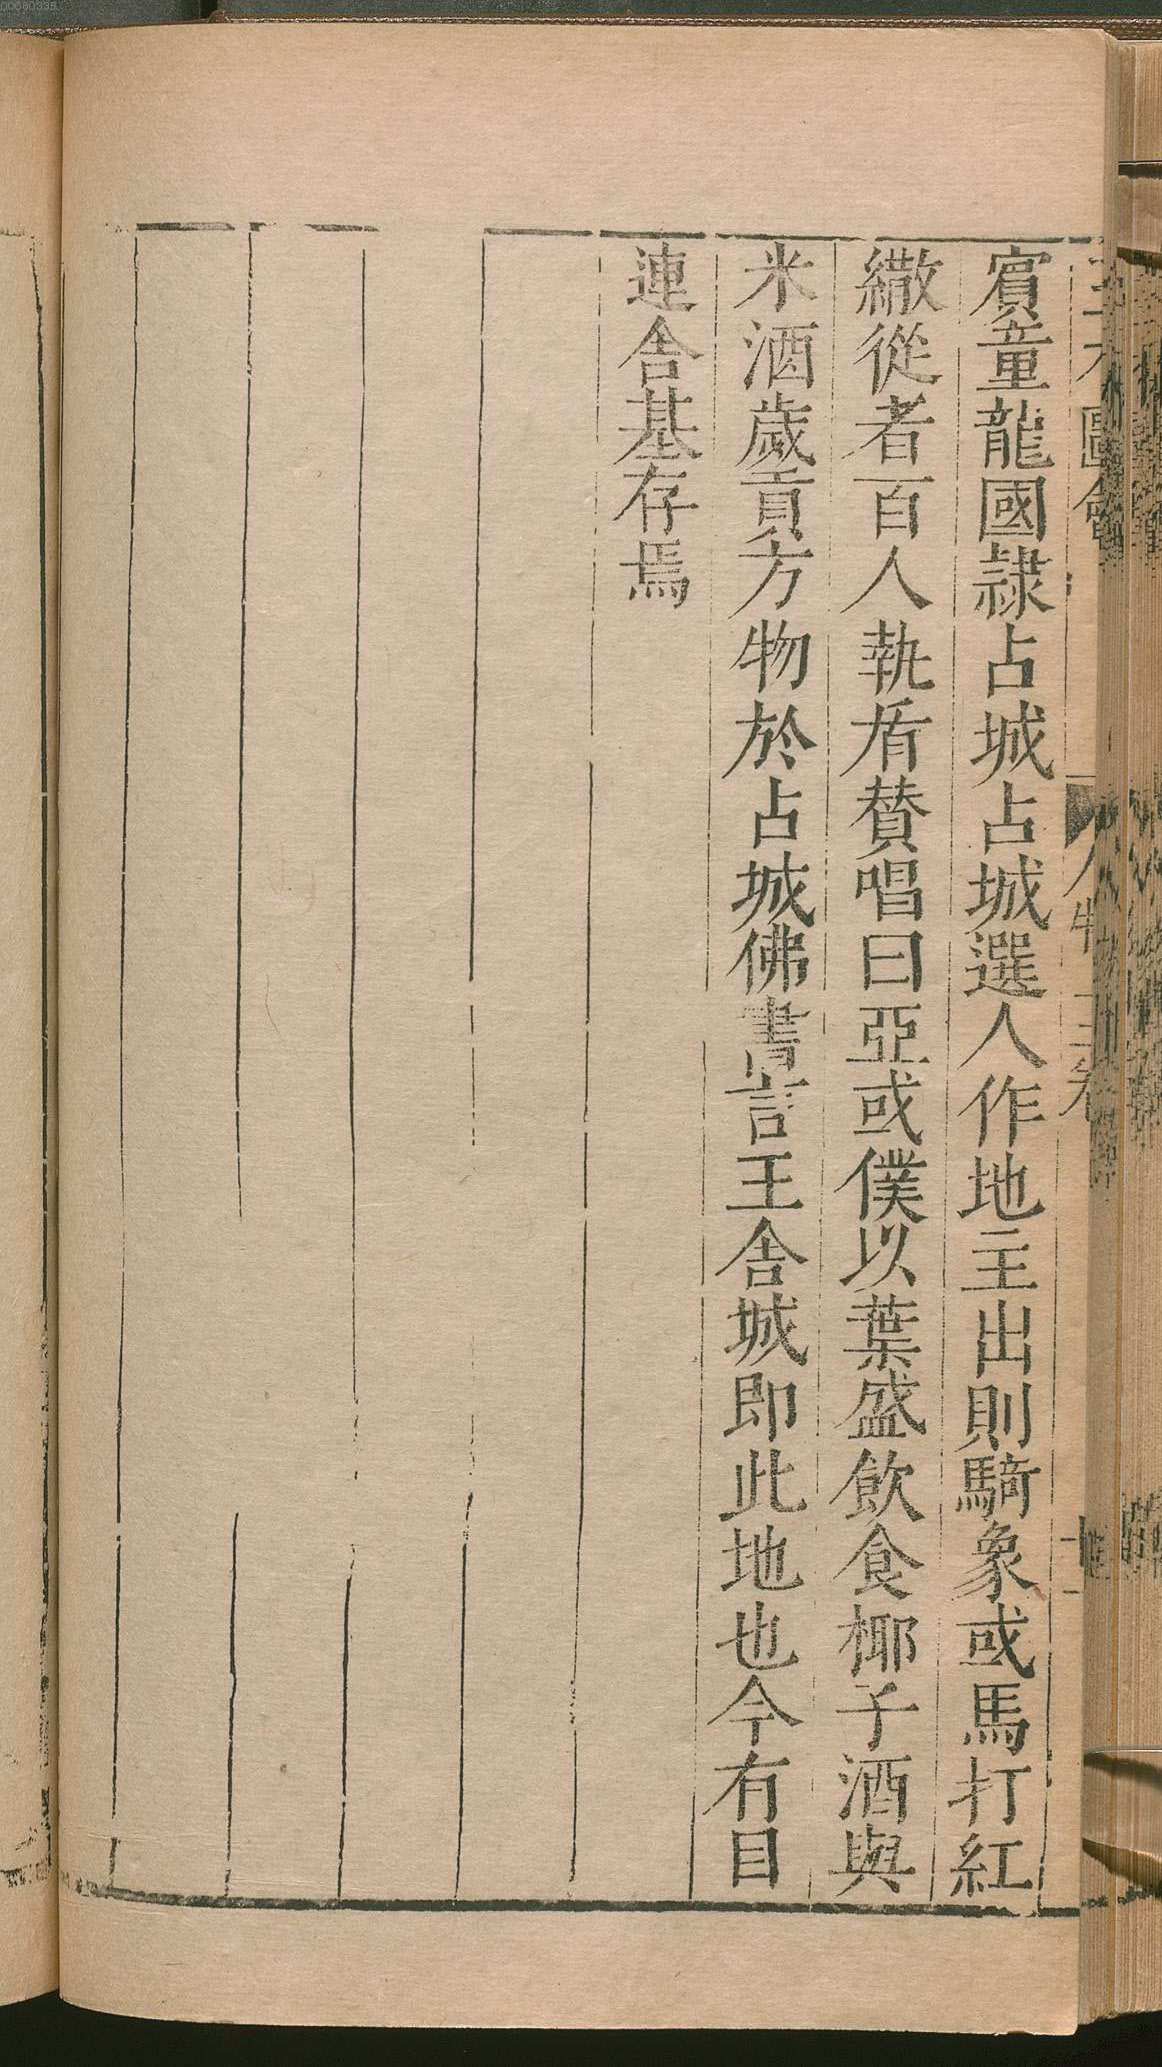 賔童龍國隷占城占城選人作地主出則騎象或馬打紅
繖從者百人執盾賛唱曰亞或僕以葉盛飲食椰子酒與
米酒歲貢方物於占城佛書言王舍城即此地也今有目
連舍基存焉